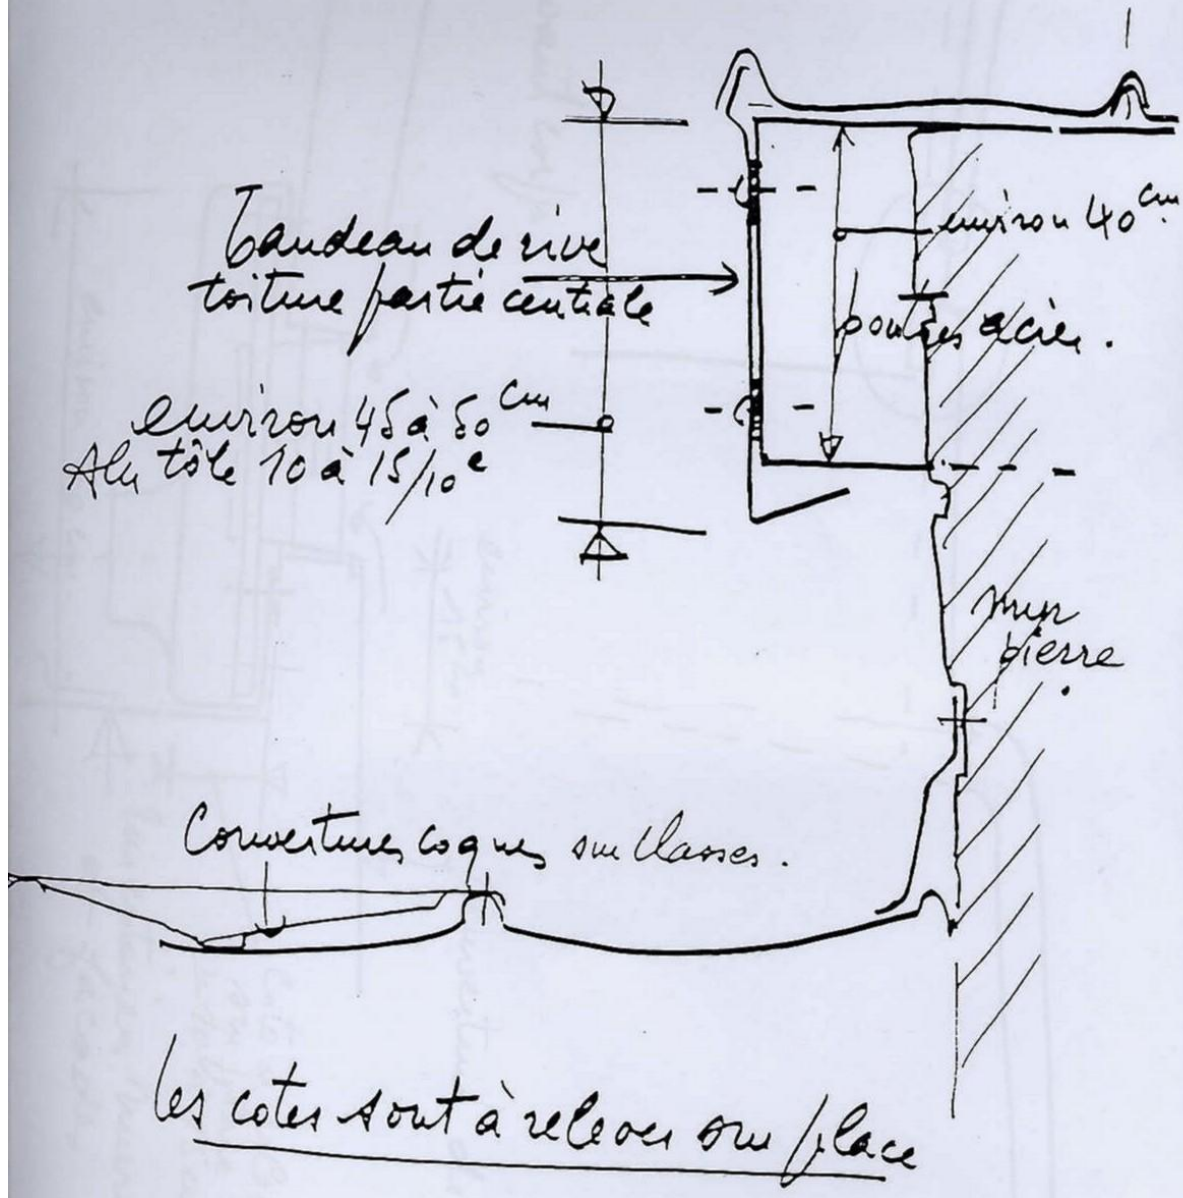 environ 40 cm
bandeau de rive
toiture partie centrale
poutres acier.
environ 45 à 50 cm
Alu tôle 10 à 15/10e
mur
pierre
Couvertures coques sur classes.
les cotes sont à relever sur place